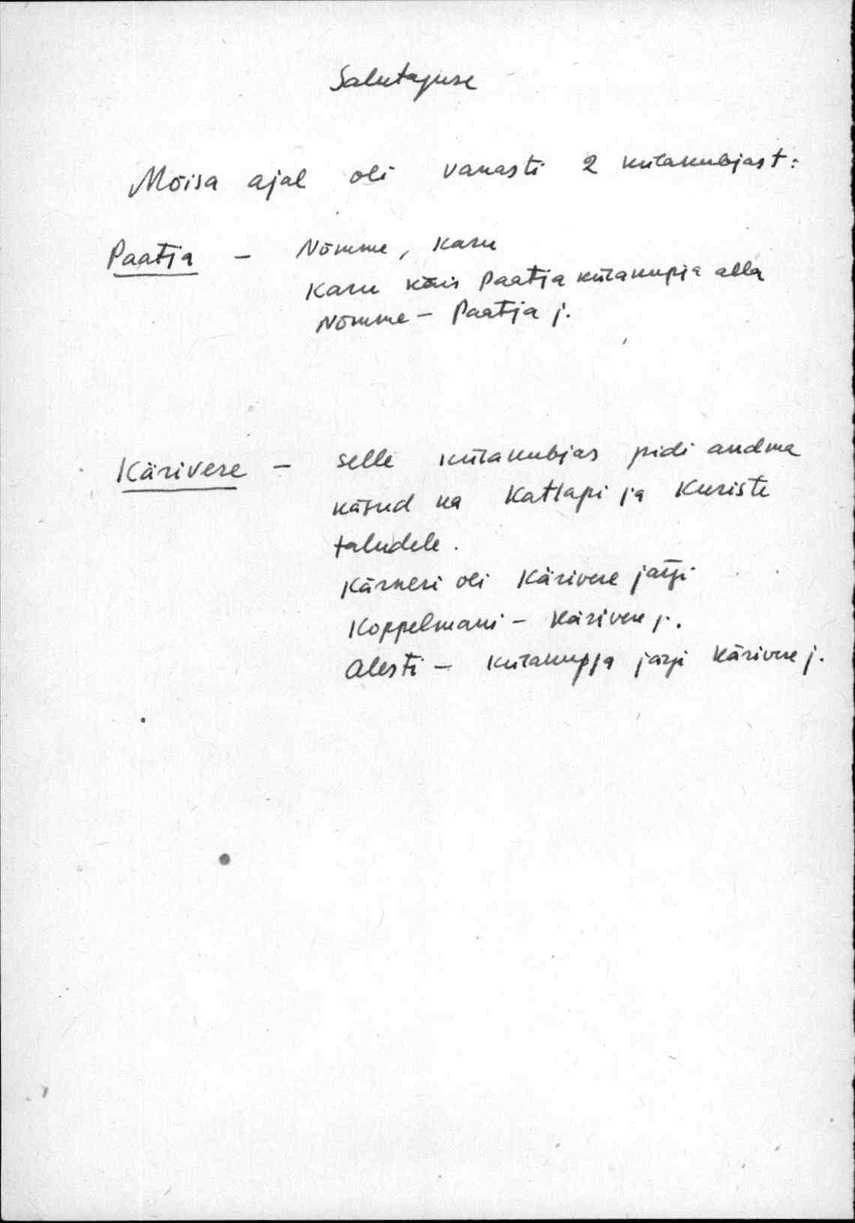 Salutaguse
Mõisa ajal oli vanasti 2 külakubjast:
Paatja – Nõmme, Karu
Karu käis Paatja külakupja alla
Nõmme – Paatja j.
Kärivere – selle külakubjas pidi andma
käsud ka Katlapi ja Kuriste
taludele.
Kärneri oli Kärivere järgi
Koppelmani – Kärivere j.
Alesti – külakupja järgi Kärivere j.